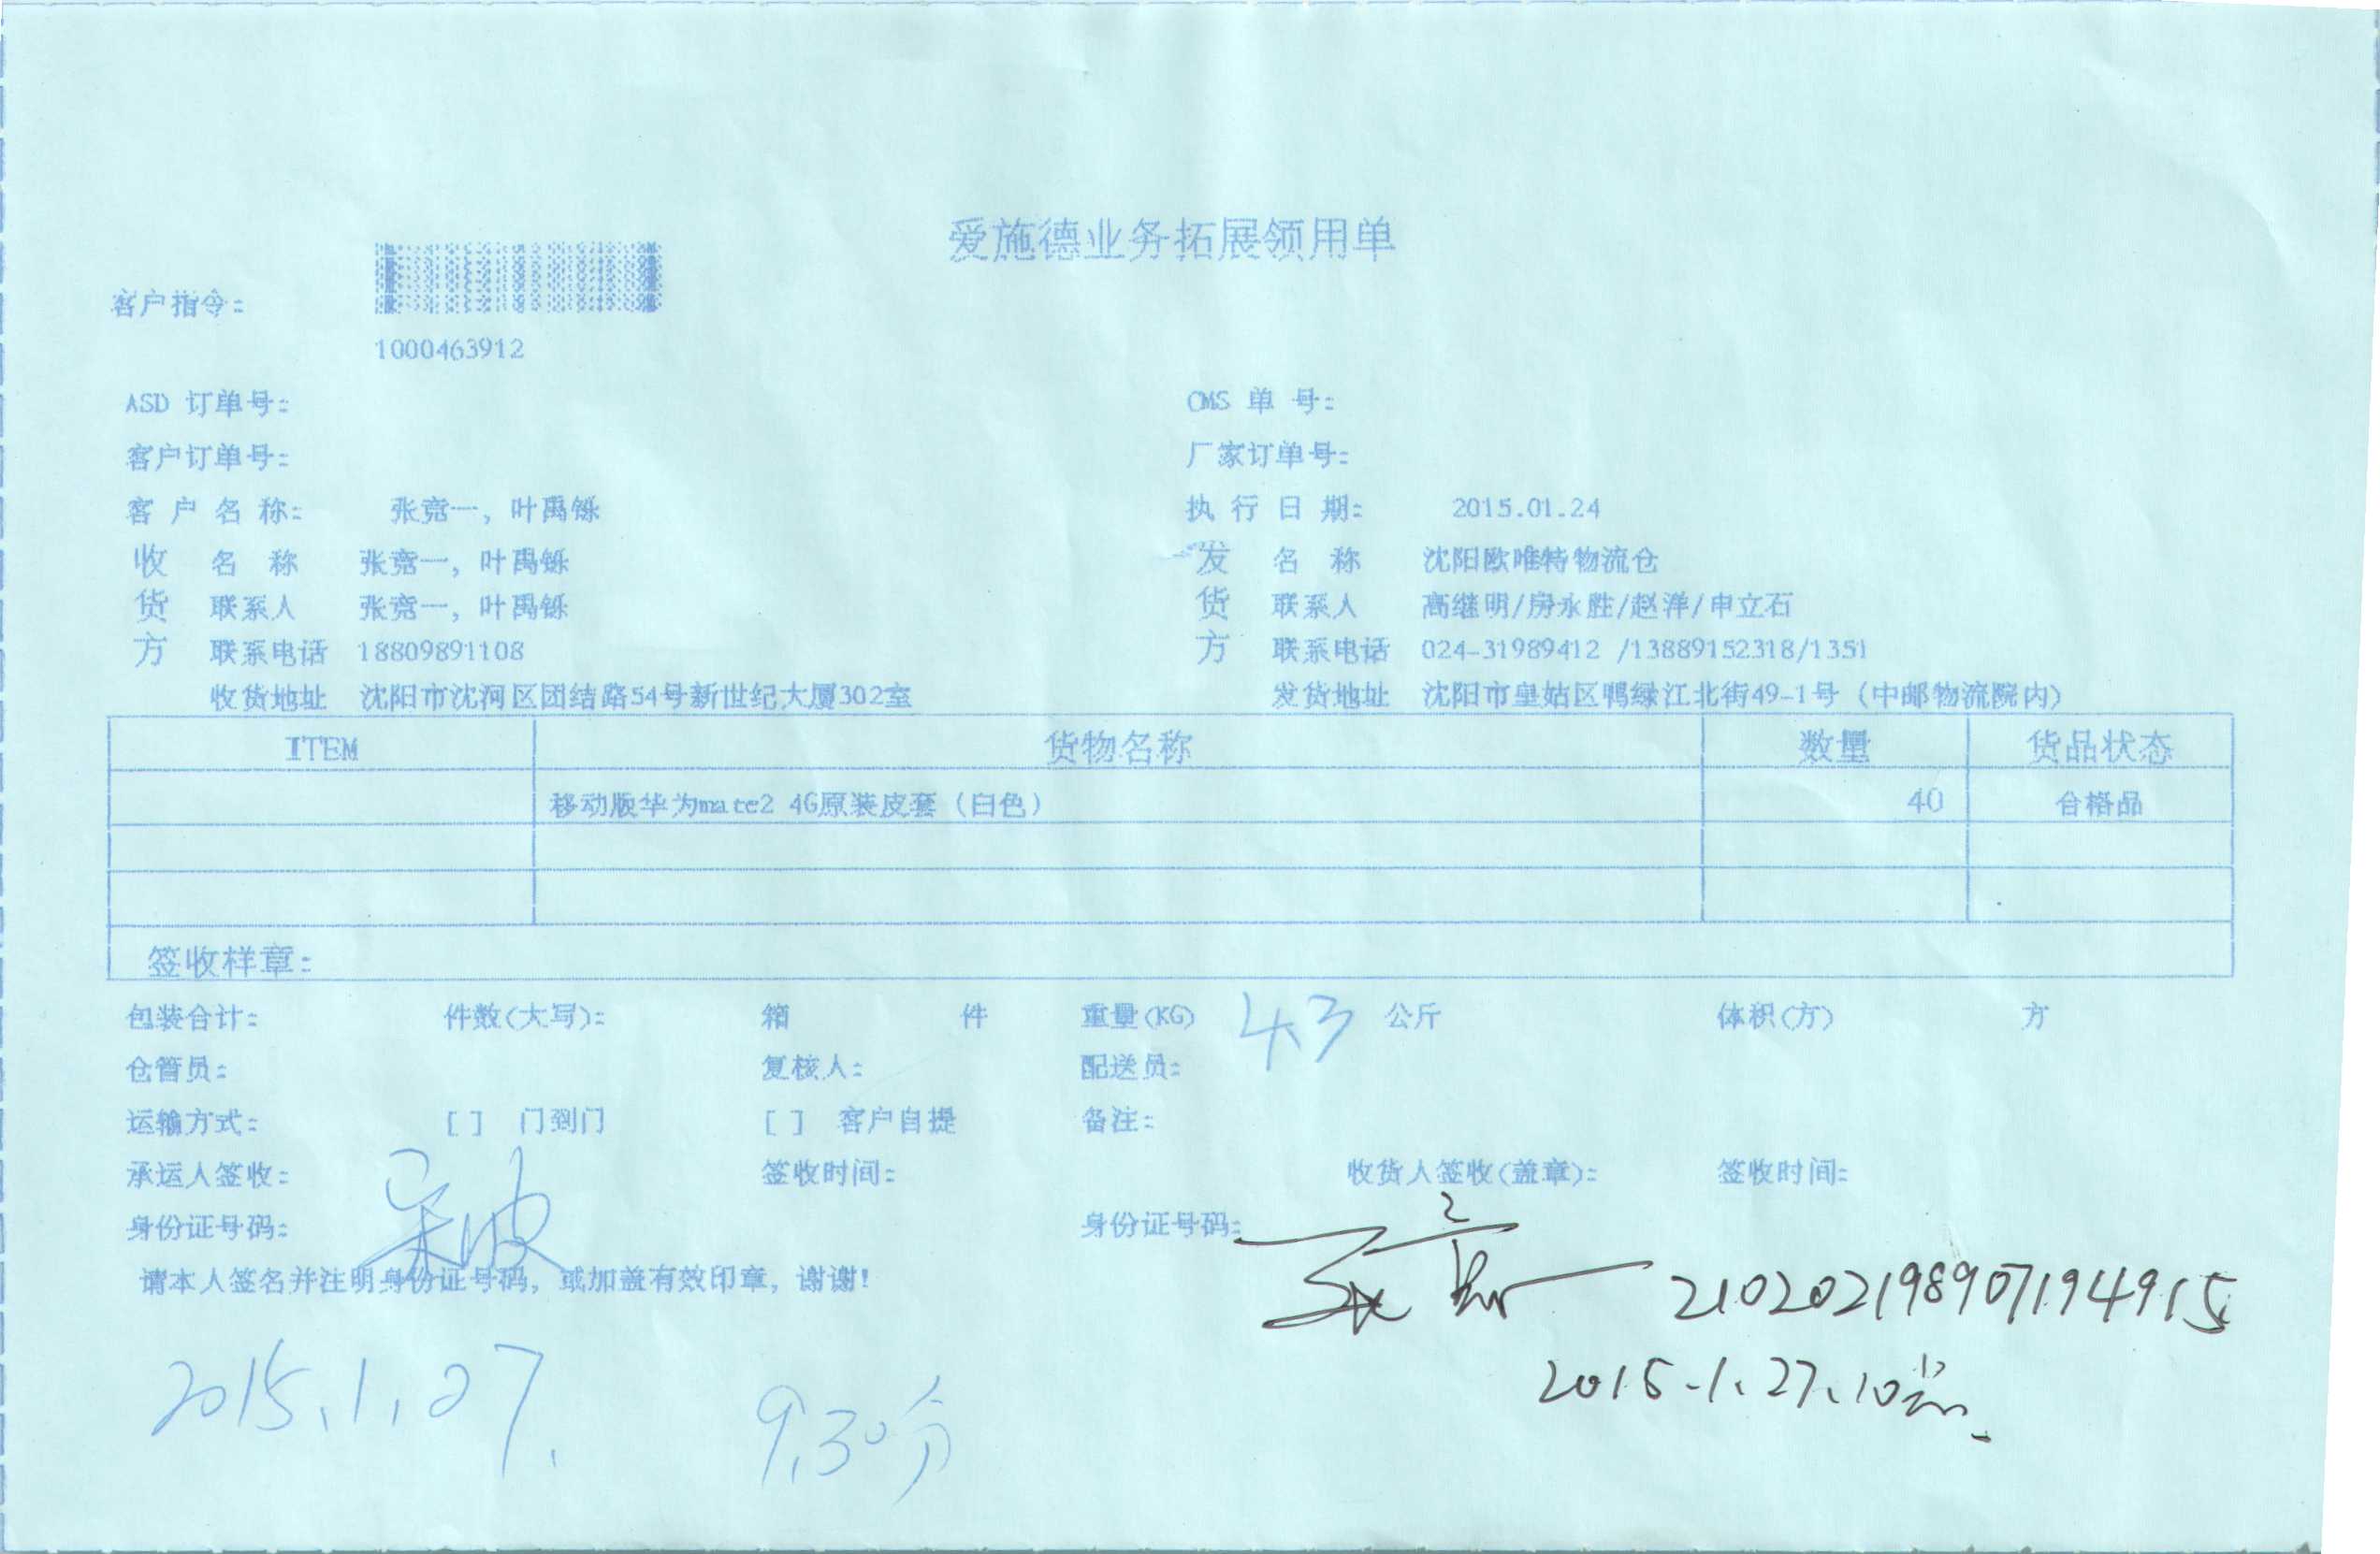 爱施德业务拓展领用单
客户指令:
1000463912
ASD 订单号: CMS 单 号:
客户订单号: 厂家订单号:
客 户 名 称: 张竞一, 叶禹铄 执 行 日 期: 2015.01.24
收 名 称 张竞一, 叶禹铄 发 名 称 沈阳欧唯特物流仓
货 联系人 张竞一, 叶禹铄 货 联系人 高继明/房永胜/赵洋/申立石
方 联系电话 18809891108 方 联系电话 024-31989412 /13889152318/1351
收货地址 沈阳市沈河区团结路54号新世纪大厦302室 发货地址 沈阳市皇姑区鸭绿江北街49-1号 (中邮物流院内)
ITEM 货物名称 数量 货品状态
移动版华为mate2 4G原装皮套 (白色) 40 合格品
签收样章:
包装合计: 件数(大写): 箱 件 重量(KG) 43 公斤 体积(方) 方
仓管员: 复核人: 配送员:
运输方式: [ ] 门到门 [ ] 客户自提 备注:
承运人签收: 签收时间: 收货人签收(盖章): 签收时间:
身份证号码: 身份证号码:
请本人签名并注明身份证号码, 或加盖有效印章, 谢谢!
210202198907194915
2015.1.27. 9.30分
2015.1.27.10